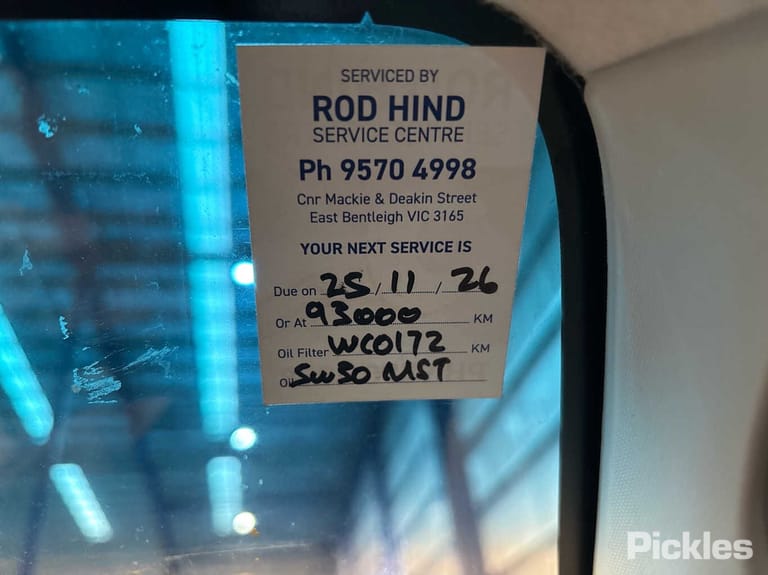 SERVICED BY
ROD HIND
SERVICE CENTRE
Ph 9570 4998
Cnr Mackie & Deakin Street
East Bentleigh VIC 3165
YOUR NEXT SERVICE IS
Due on 25 / 11 / 26
Or At 93000 KM
Oil Filter WCO172 KM
Oil 5W50 MST
Pickles